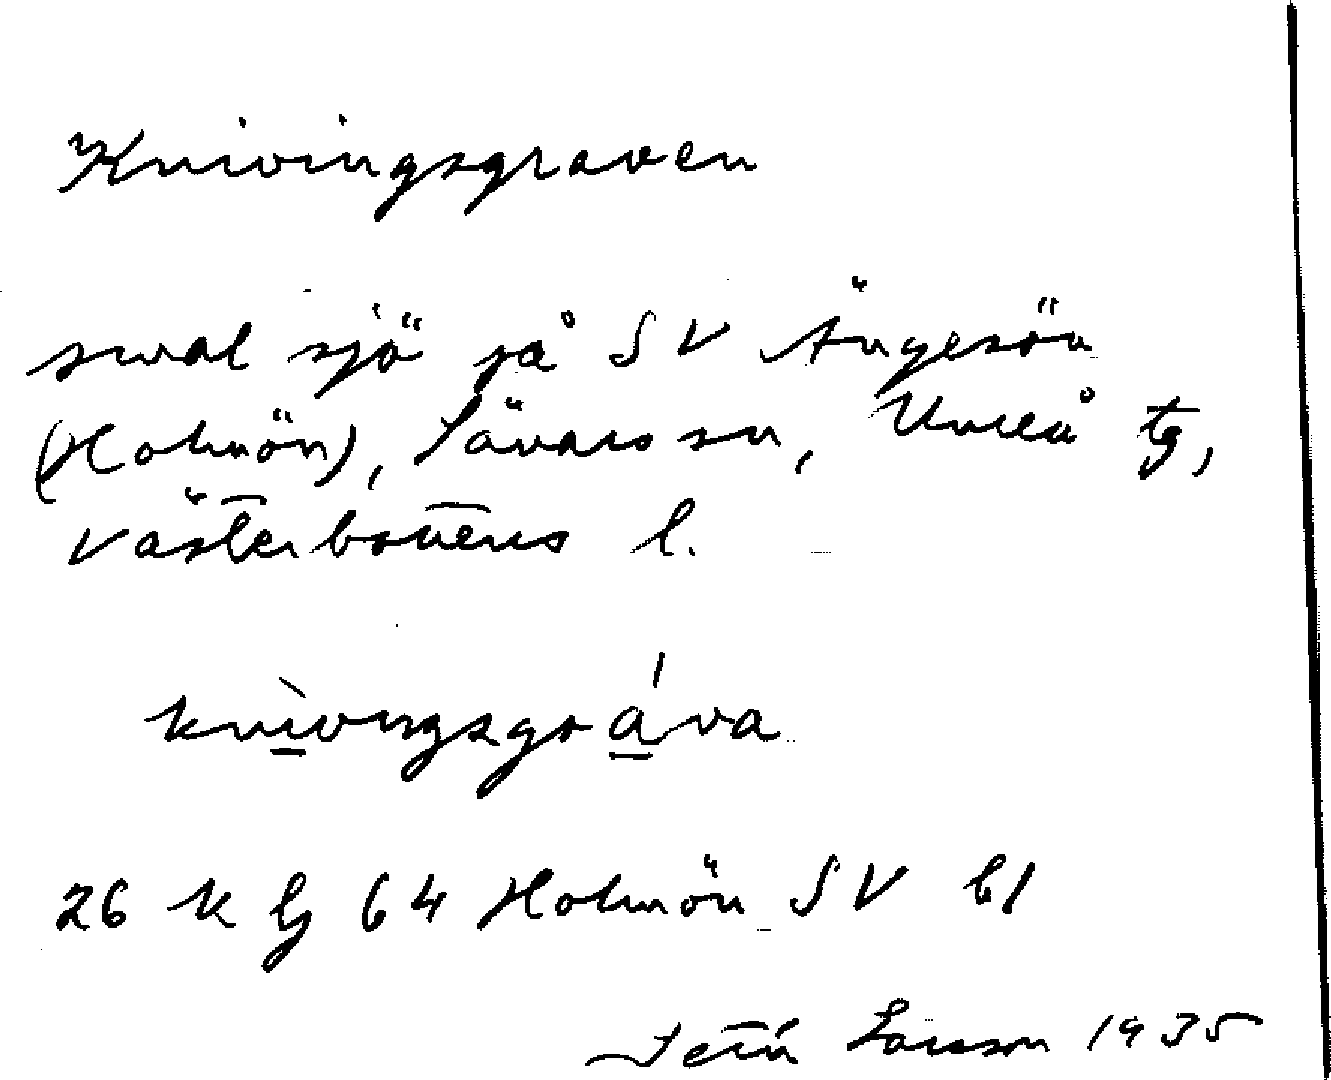 Knivingsgraven
smal sjö på SV Ängesön
(Holmön), Sävars sn, Umeå tg,
Västerbottens l.
knìvingsgráva
26 k lj 64 Holmön SV bl
Setú Larsson 1935